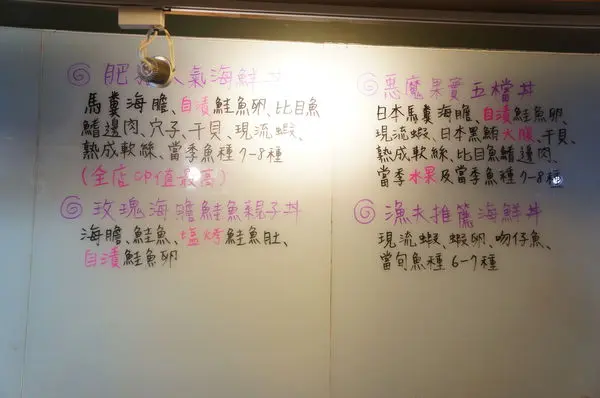 肥 人氣海鮮丼
馬糞海膽、自漬鮭魚卵、比目魚
鰭邊肉、穴子、干貝、現流蝦、
熟成軟絲、當季魚種 7-8種
(全店CP值最高)
玫瑰海膽鮭魚親子丼
海膽、鮭魚、塩烤鮭魚肚、
自漬鮭魚卵
惡魔果實五檔丼
日本馬糞海膽、自漬鮭魚卵、
現流蝦、日本黑鮪大腹、干貝、
熟成軟絲、比目魚鰭邊肉、
當季水果及當季魚種 7-8種
漁夫推薦海鮮丼
現流蝦、蝦卵、吻仔魚、
當旬魚種 6-7種